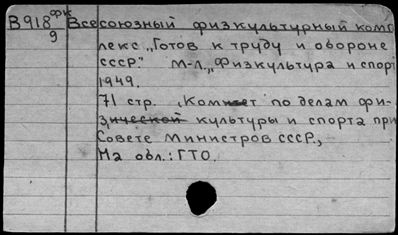 фк
В918 Всесоюзный физкультурный комп
9
лекс „Готов к труду и обороне
СССР." М-Л., „Физкультура и спорт
1949.
71 стр. (Комитет по делам фи-
зической культуры и спорта при
Совете Министров СССР.,
На обл.: ГТО.